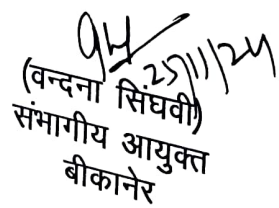 25/11/24
(वन्दना सिंघवी)
संभागीय आयुक्त
बीकानेर